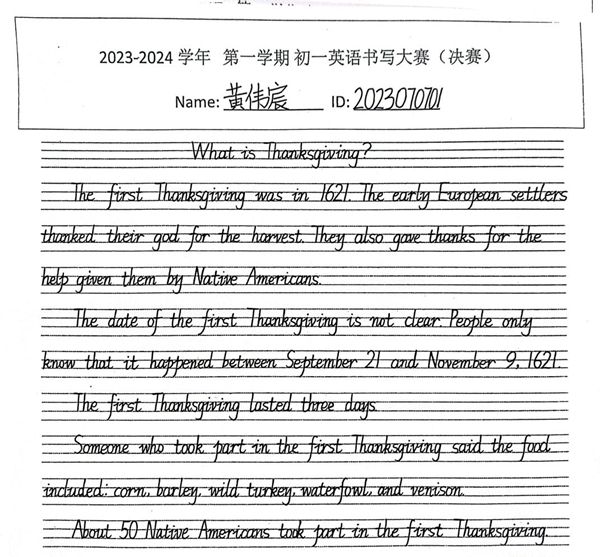 2023-2024 学年 第一学期 初一英语书写大赛（决赛）
Name: 黄伟宸 ID: 2023070701
What is Thanksgiving?
The first Thanksgiving was in 1621. The early European settlers
thanked their god for the harvest. They also gave thanks for the
help given them by Native Americans.
The date of the first Thanksgiving is not clear. People only
know that it happened between September 21 and November 9, 1621.
The first Thanksgiving lasted three days.
Someone who took part in the first Thanksgiving said the food
included: corn, barley, wild turkey, waterfowl, and venison.
About 50 Native Americans took part in the first Thanksgiving.